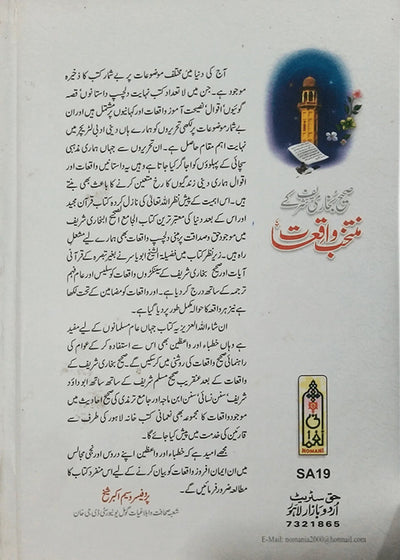 آج کی دنیا میں مختلف موضوعات پر بے شمار کتب کا ذخیرہ
موجود ہے۔ جن میں لا تعداد کتب نہایت دلچسپ داستانوں، قصہ
گوئیوں، اقوال، نصیحت آموز واقعات اور کہانیوں پر مشتمل ہیں اور ان
بے شمار موضوعات پر لکھی تحریروں کو ہمارے ہاں دینی ادبی لٹریچر میں
نہایت اہم مقام حاصل ہے۔ ان تحریروں سے جہاں ہماری مذہبی
سچائی کے پہلوؤں کو اجاگر کیا جاتا ہے وہیں یہ داستانیں واقعات اور
اقوال ہماری دینی زندگیوں کا رخ متعین کرنے کا باعث بھی بنتے
ہیں۔ اس اہمیت کے پیش نظر اللہ تعالیٰ کی نازل کردہ کتاب قرآن مجید
اور اس کے بعد دنیا کی معتبر ترین کتاب الجامع الصحیح البخاری شریف
میں موجود حق و صداقت پر مبنی دلچسپ واقعات بھی ہمارے لیے مشعل
راہ ہیں۔ زیر نظر کتاب میں فضیلۃ الشیخ ابو یاسر نے بغیر تبصرہ کے قرآنی
آیات اور صحیح بخاری شریف کے سینکڑوں واقعات کو سلیس اور عام فہم
ترجمہ کے ساتھ درج کر دیا ہے۔ اور واقعات کو مضامین کے تحت لکھا
ہے نیز ہر واقعہ کا حوالہ مکمل طور پر دیا گیا ہے۔
ان شاء اللہ العزیز یہ کتاب جہاں عام مسلمانوں کے لیے مفید
ہے وہاں خطباء اور واعظین بھی اس سے استفادہ کر کے عوام کی
راہنمائی صحیح واقعات کی روشنی میں کر سکیں گے۔ صحیح بخاری شریف کے
واقعات کے بعد عنقریب صحیح مسلم شریف کے ساتھ ساتھ ابو داؤد
شریف، سنن نسائی، سنن ابن ماجہ اور جامع ترمذی کی صحیح احادیث میں
موجود واقعات کا مجموعہ بھی نعمانی کتب خانہ لاہور کی طرف سے
قارئین کی خدمت میں پیش کیا جائے گا۔
مجھے امید ہے کہ خطباء اور واعظین اپنے دروس اور نجی مجالس
میں ان ایمان افروز واقعات کو بیان کرنے کے لیے اس منفرد کتاب کا
مطالعہ ضرور فرمائیں گے۔
پروفیسر وسیم اکبر شیخ
شعبہ صحافت و ابلاغیات گومل یونیورسٹی ڈی جی خان
صحیح بخاری شریف کے
منتخب واقعات
NOMANI
SA19
حق سٹریٹ
اردو بازار لاہور
7321865
E-Mail: nomania2000@hotmail.com